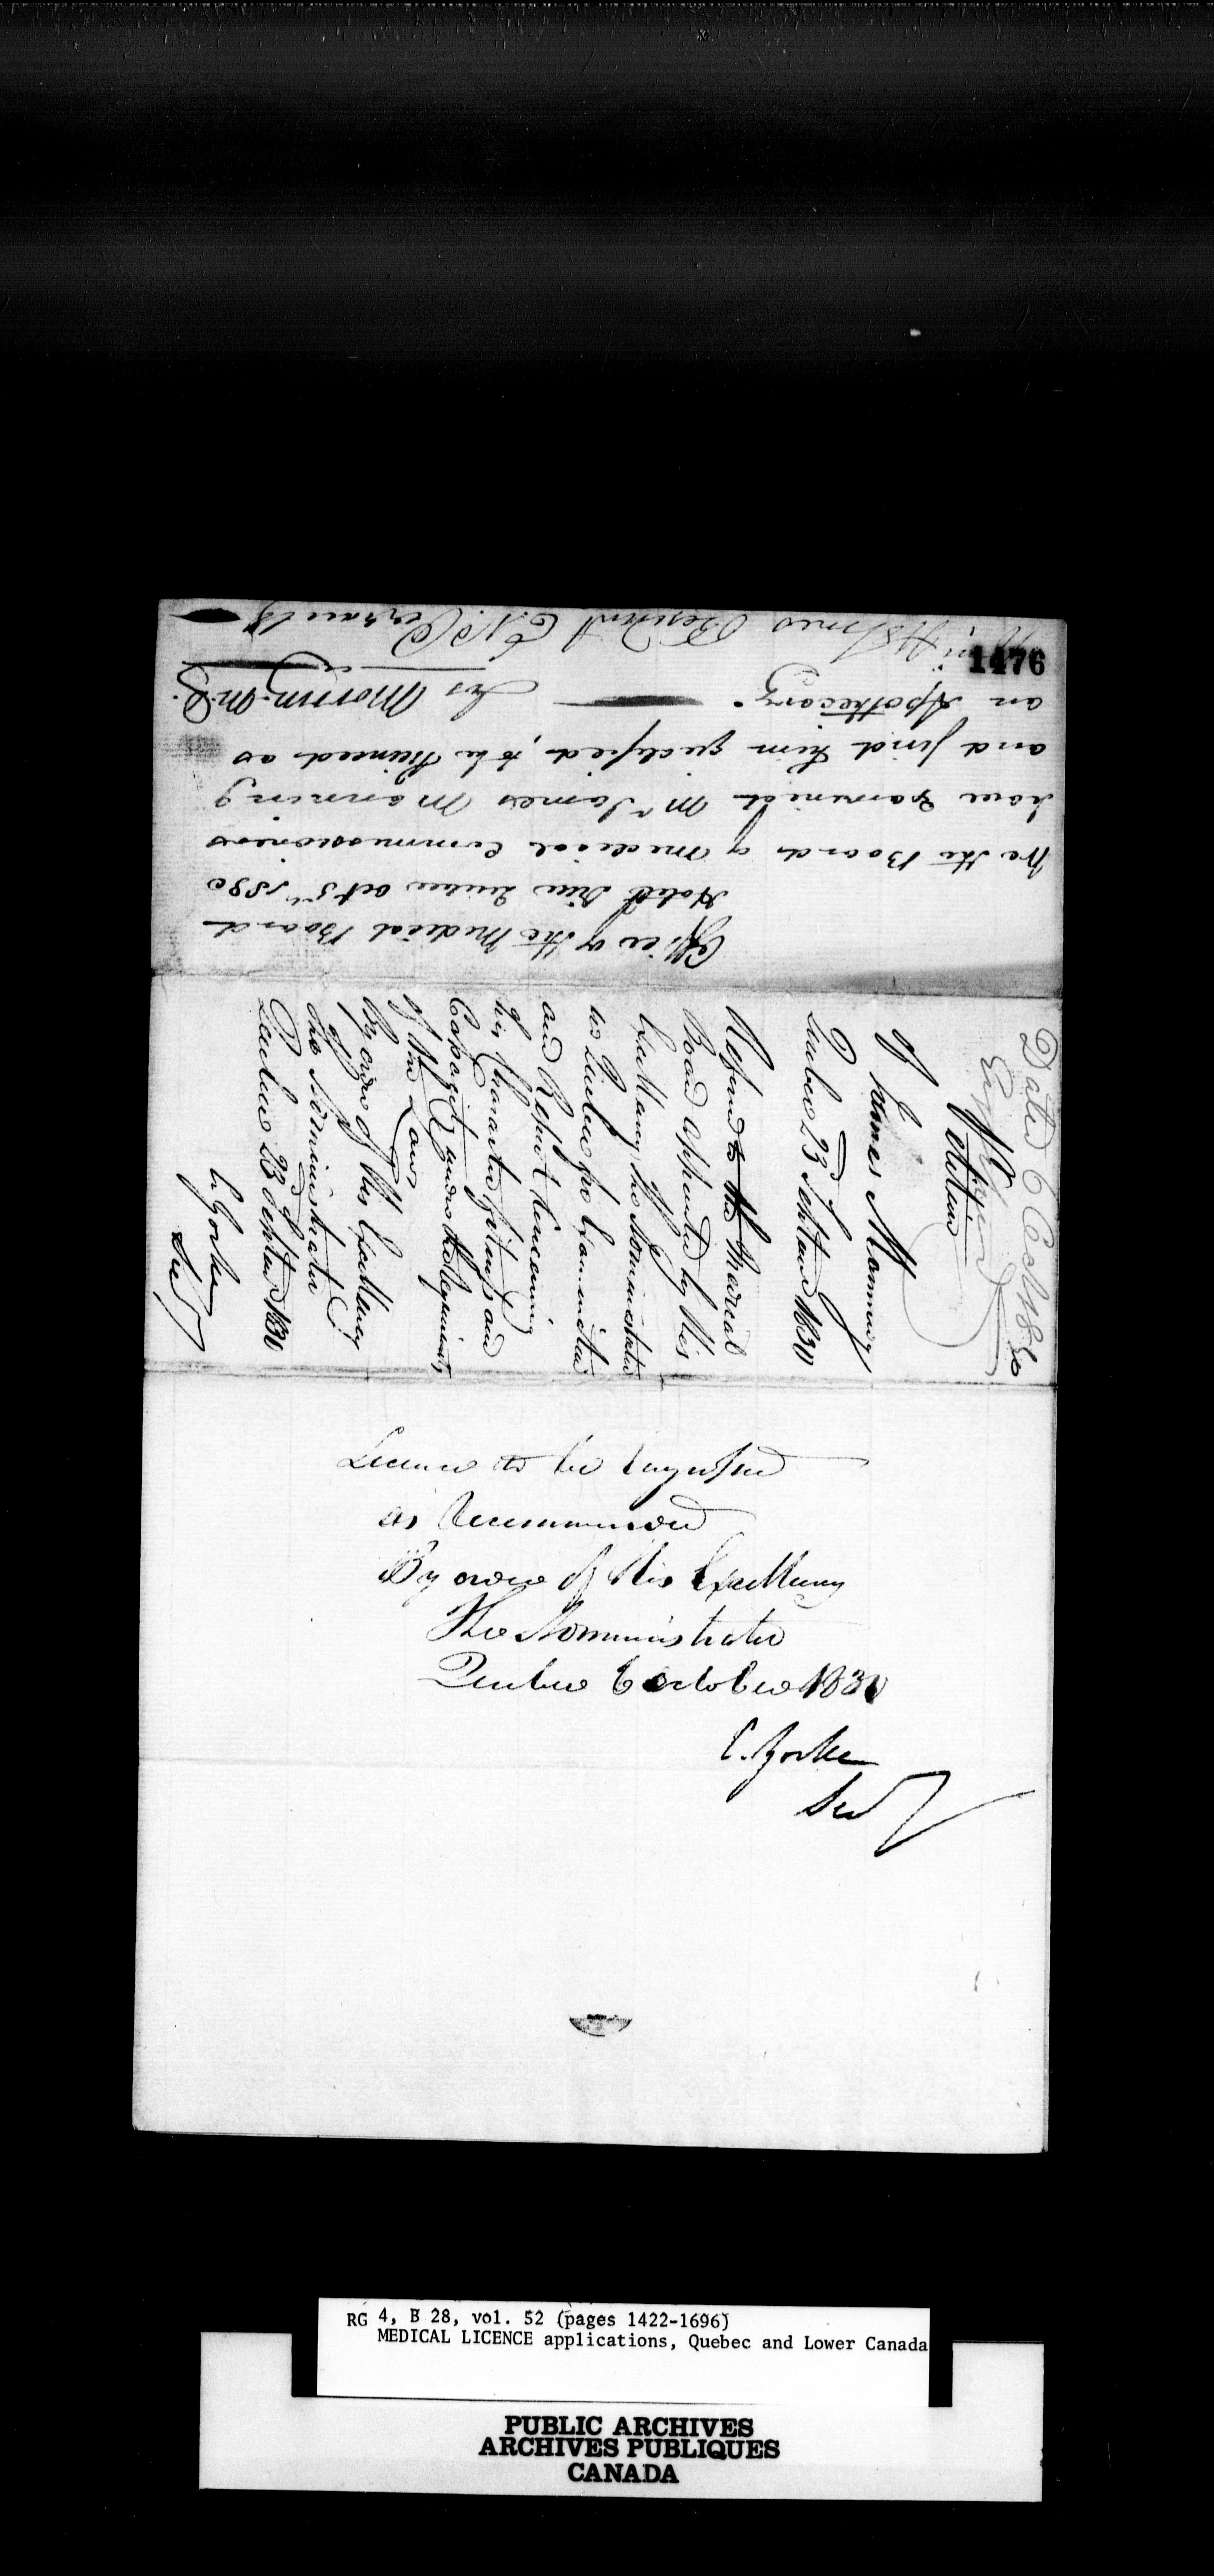 1476
Office of the Medical Board
Hotel Dieu Quebec Octr 5th 1830
We the Board of Medical Commissioners
have Examined Mr James Manning
and find him qualified, to be licinced as
an Apothecary.
Jos Morrin. M.D.
President
Dated 6 Octr 1830
Petition
of James Manning
Quebec 23 Septemr 1830
Referred to the Medical
Board appointed by His
Excellency the Administrator
for Examination
and Report concerning
his Character fitness and
Capacity under the Requirements
of the Law
By order of His Excellency
The Administrator
Quebec 23d Septemr 1830
C. Yorke
Secy
Licence to be Engrossed
as Recommended
By order of His Excellency
The Administrator
Quebec 6 October 1830
C. Yorke
Secy
RG 4, B 28, vol. 52 (pages 1422-1696)
MEDICAL LICENCE applications, Quebec and Lower Canada
PUBLIC ARCHIVES
ARCHIVES PUBLIQUES
CANADA